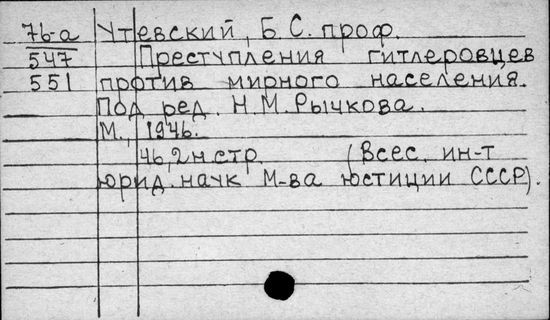 76-а Утевский, Б.С. проф.
547 Преступления гитлеровцев
551 против мирного населения.
Под ред. Н.М.Рычкова.
М., 1946.
46,2н.стр. (Всес. ин-т
юрид. наук М-ва юстиции СССР).